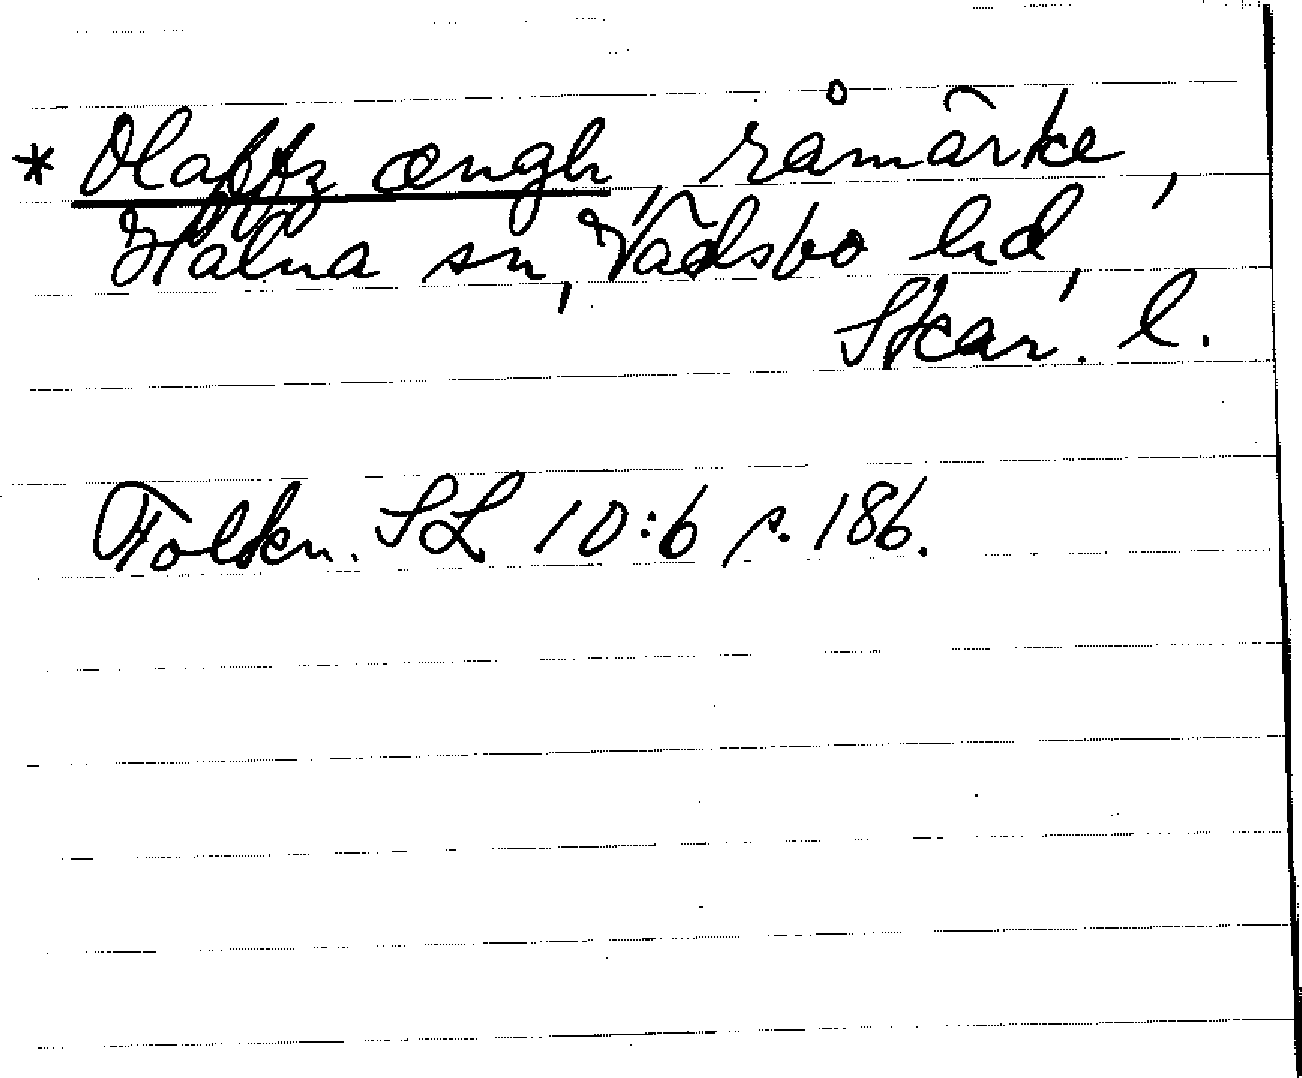 * Olaffz ængh, råmärke,
Halna sn, Vadsbo hd,
Skar. l.
Folkn. SL 10:6 s. 186.